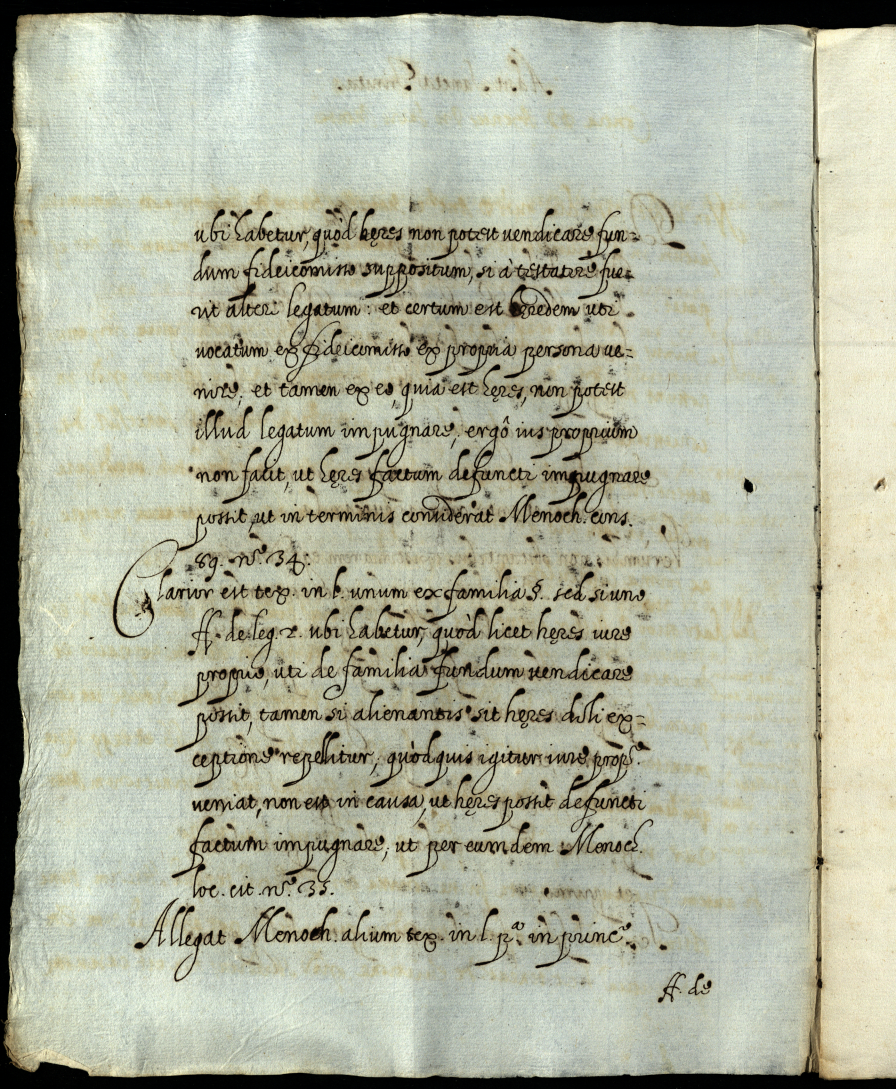 ubi habetur, quòd hęres non potest vendicare fun=
dum fideicomisso suppositum, si à testatore fue=
rit alteri legatum: et certum est hęredem uti
vocatum ex fideicomisso ex propria persona ve=
nire, et tamen ex eo, quia est hęres, non potest
illud legatum impugnare, ergò ius proprium
non facit, ut hęres factum defuncti impugnare
possit, ut in terminis considerat Menoch. cons.
89. n.º 34.
Clarior est tex. in l. unum ex familia §. sed si uno
ff. de leg. 2. ubi habetur, quòd licet hęres iure
proprio, uti de familia fundum vendicare
possit, tamen si alienantis sit hęres doli ex=
ceptione repellitur, quòd quis igitur iure prop.º
veniat, non est in causa, ut hęres possit defuncti
factum impugnare, ut per eumdem Menoch.
loc. cit. n.º 35.
Allegat Menoch. alium tex. in l. p.ª in princ.º
ff. de